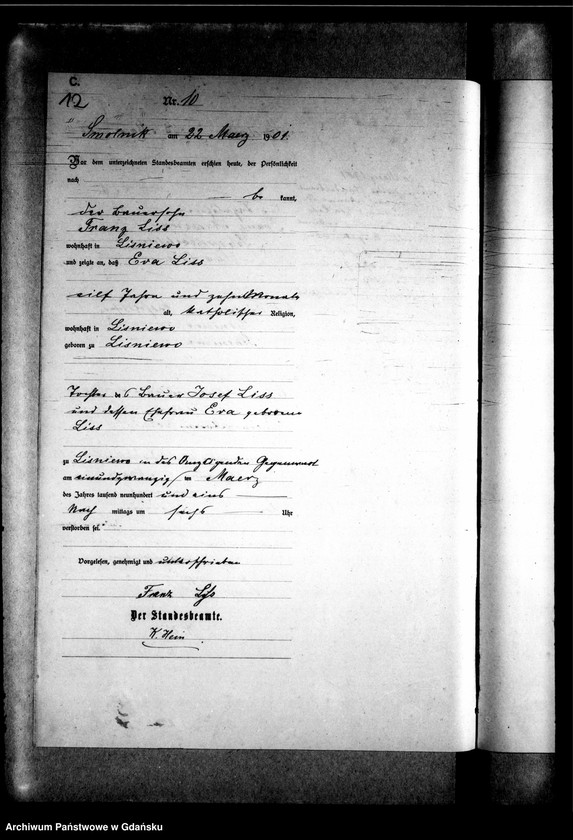 C.
12
Nr. 10
Smolnik am 22 Maerz 1901.
Vor dem unterzeichneten Standesbeamten erschien heute, der Persönlichkeit
nach
be kannt,
der Bauersohn
Franz Liss
wohnhaft in Lisniewo
und zeigte an, daß Eva Liss
eilf Jahre und zehn Monate
alt, katholischer Religion,
wohnhaft in Lisniewo
geboren zu Lisniewo
Tochter des Bauer Josef Liss
und dessen Ehefrau Eva geborene
Liss
zu Lisniewo in des Anzeigenden Gegenwart
am einundzwanzigsten Maerz
des Jahres tausend neunhundert und eins
Nach mittags um sechs Uhr
verstorben sei.
Vorgelesen, genehmigt und unterschrieben
Franz Lys
Der Standesbeamte.
K. Hein
Archiwum Państwowe w Gdańsku